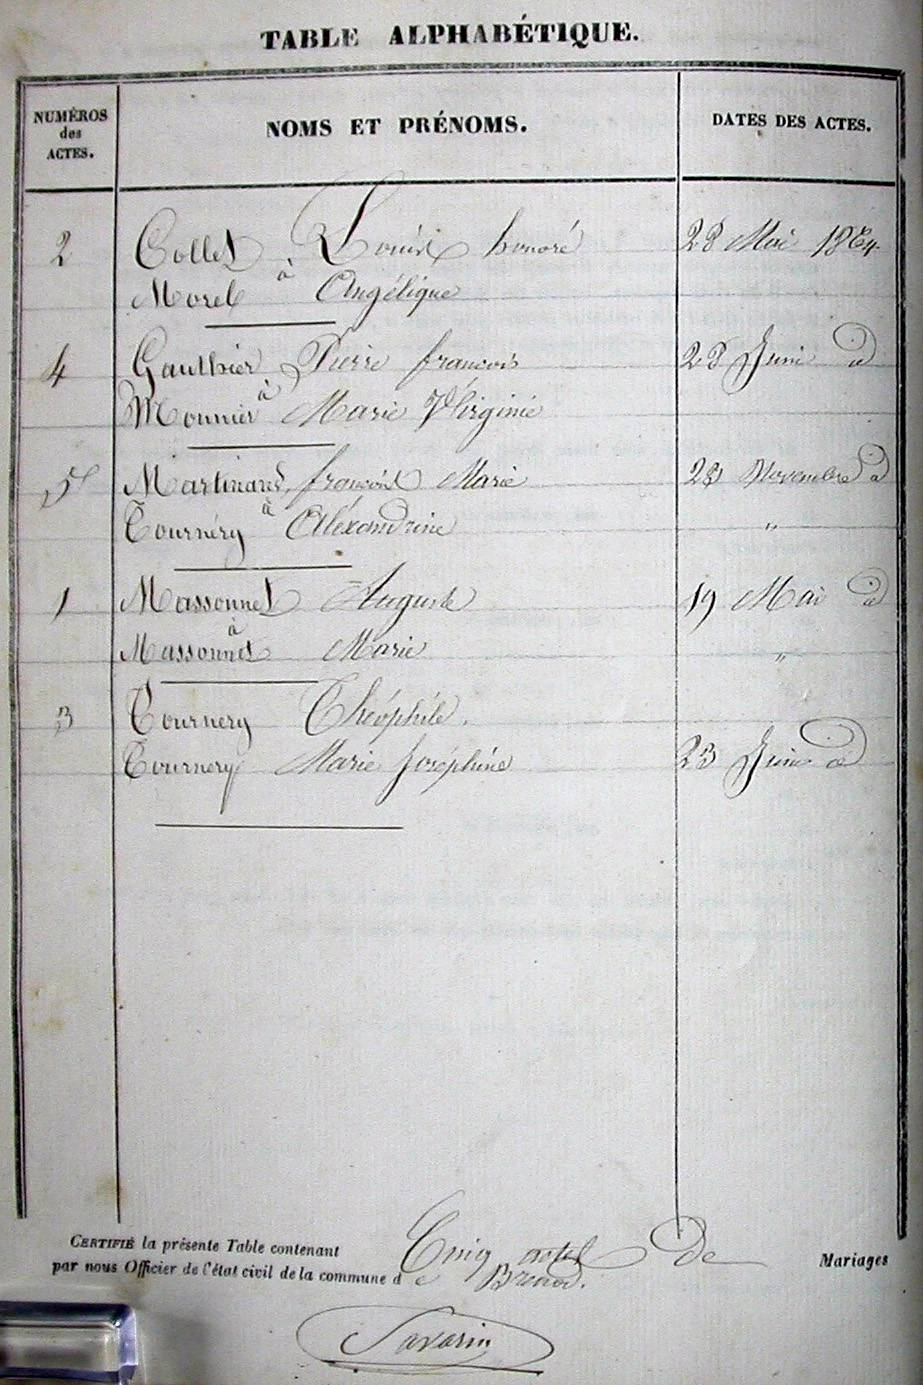 TABLE ALPHABÉTIQUE.
NUMÉROS des ACTES.
NOMS ET PRÉNOMS.
DATES DES ACTES.
2 Collet Louis honoré 28 Mai 1864
à
Morel Angélique
4 Gauthier Pierre francois 28 Juin d
à
Monnier Marie Virginie
5 Martinand, francois Marie 23 Novembre d
à
Tournéry Aléxandrine "
1 Massonnet Auguste 19 Mai d
à
Massonnet Marie "
3 Tournery Théophile.
Tournery Marie Joséphine 23 Juin d
CERTIFIÉ la présente Table contenant Cinq actes De Mariages
par nous Officier de l'état civil de la commune de Brénod.
Savarin